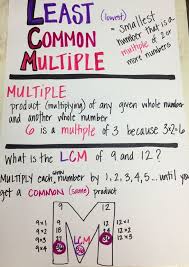 LEAST (lowest)
COMMON
MULTIPLE
- smallest
number that is a
multiple of 2
or more numbers
MULTIPLE
product (multiplying) of any given whole number
and another whole number
6 is a multiple of 3 because 3·2=6
What is the LCM of 9 and 12?
MULTIPLY each given number by 1, 2, 3, 4, 5... until you
get a COMMON (same) product
9×1 9 12×1
9×2 18 12×2
9×3 27 LCM 12×3
9×4 36 36